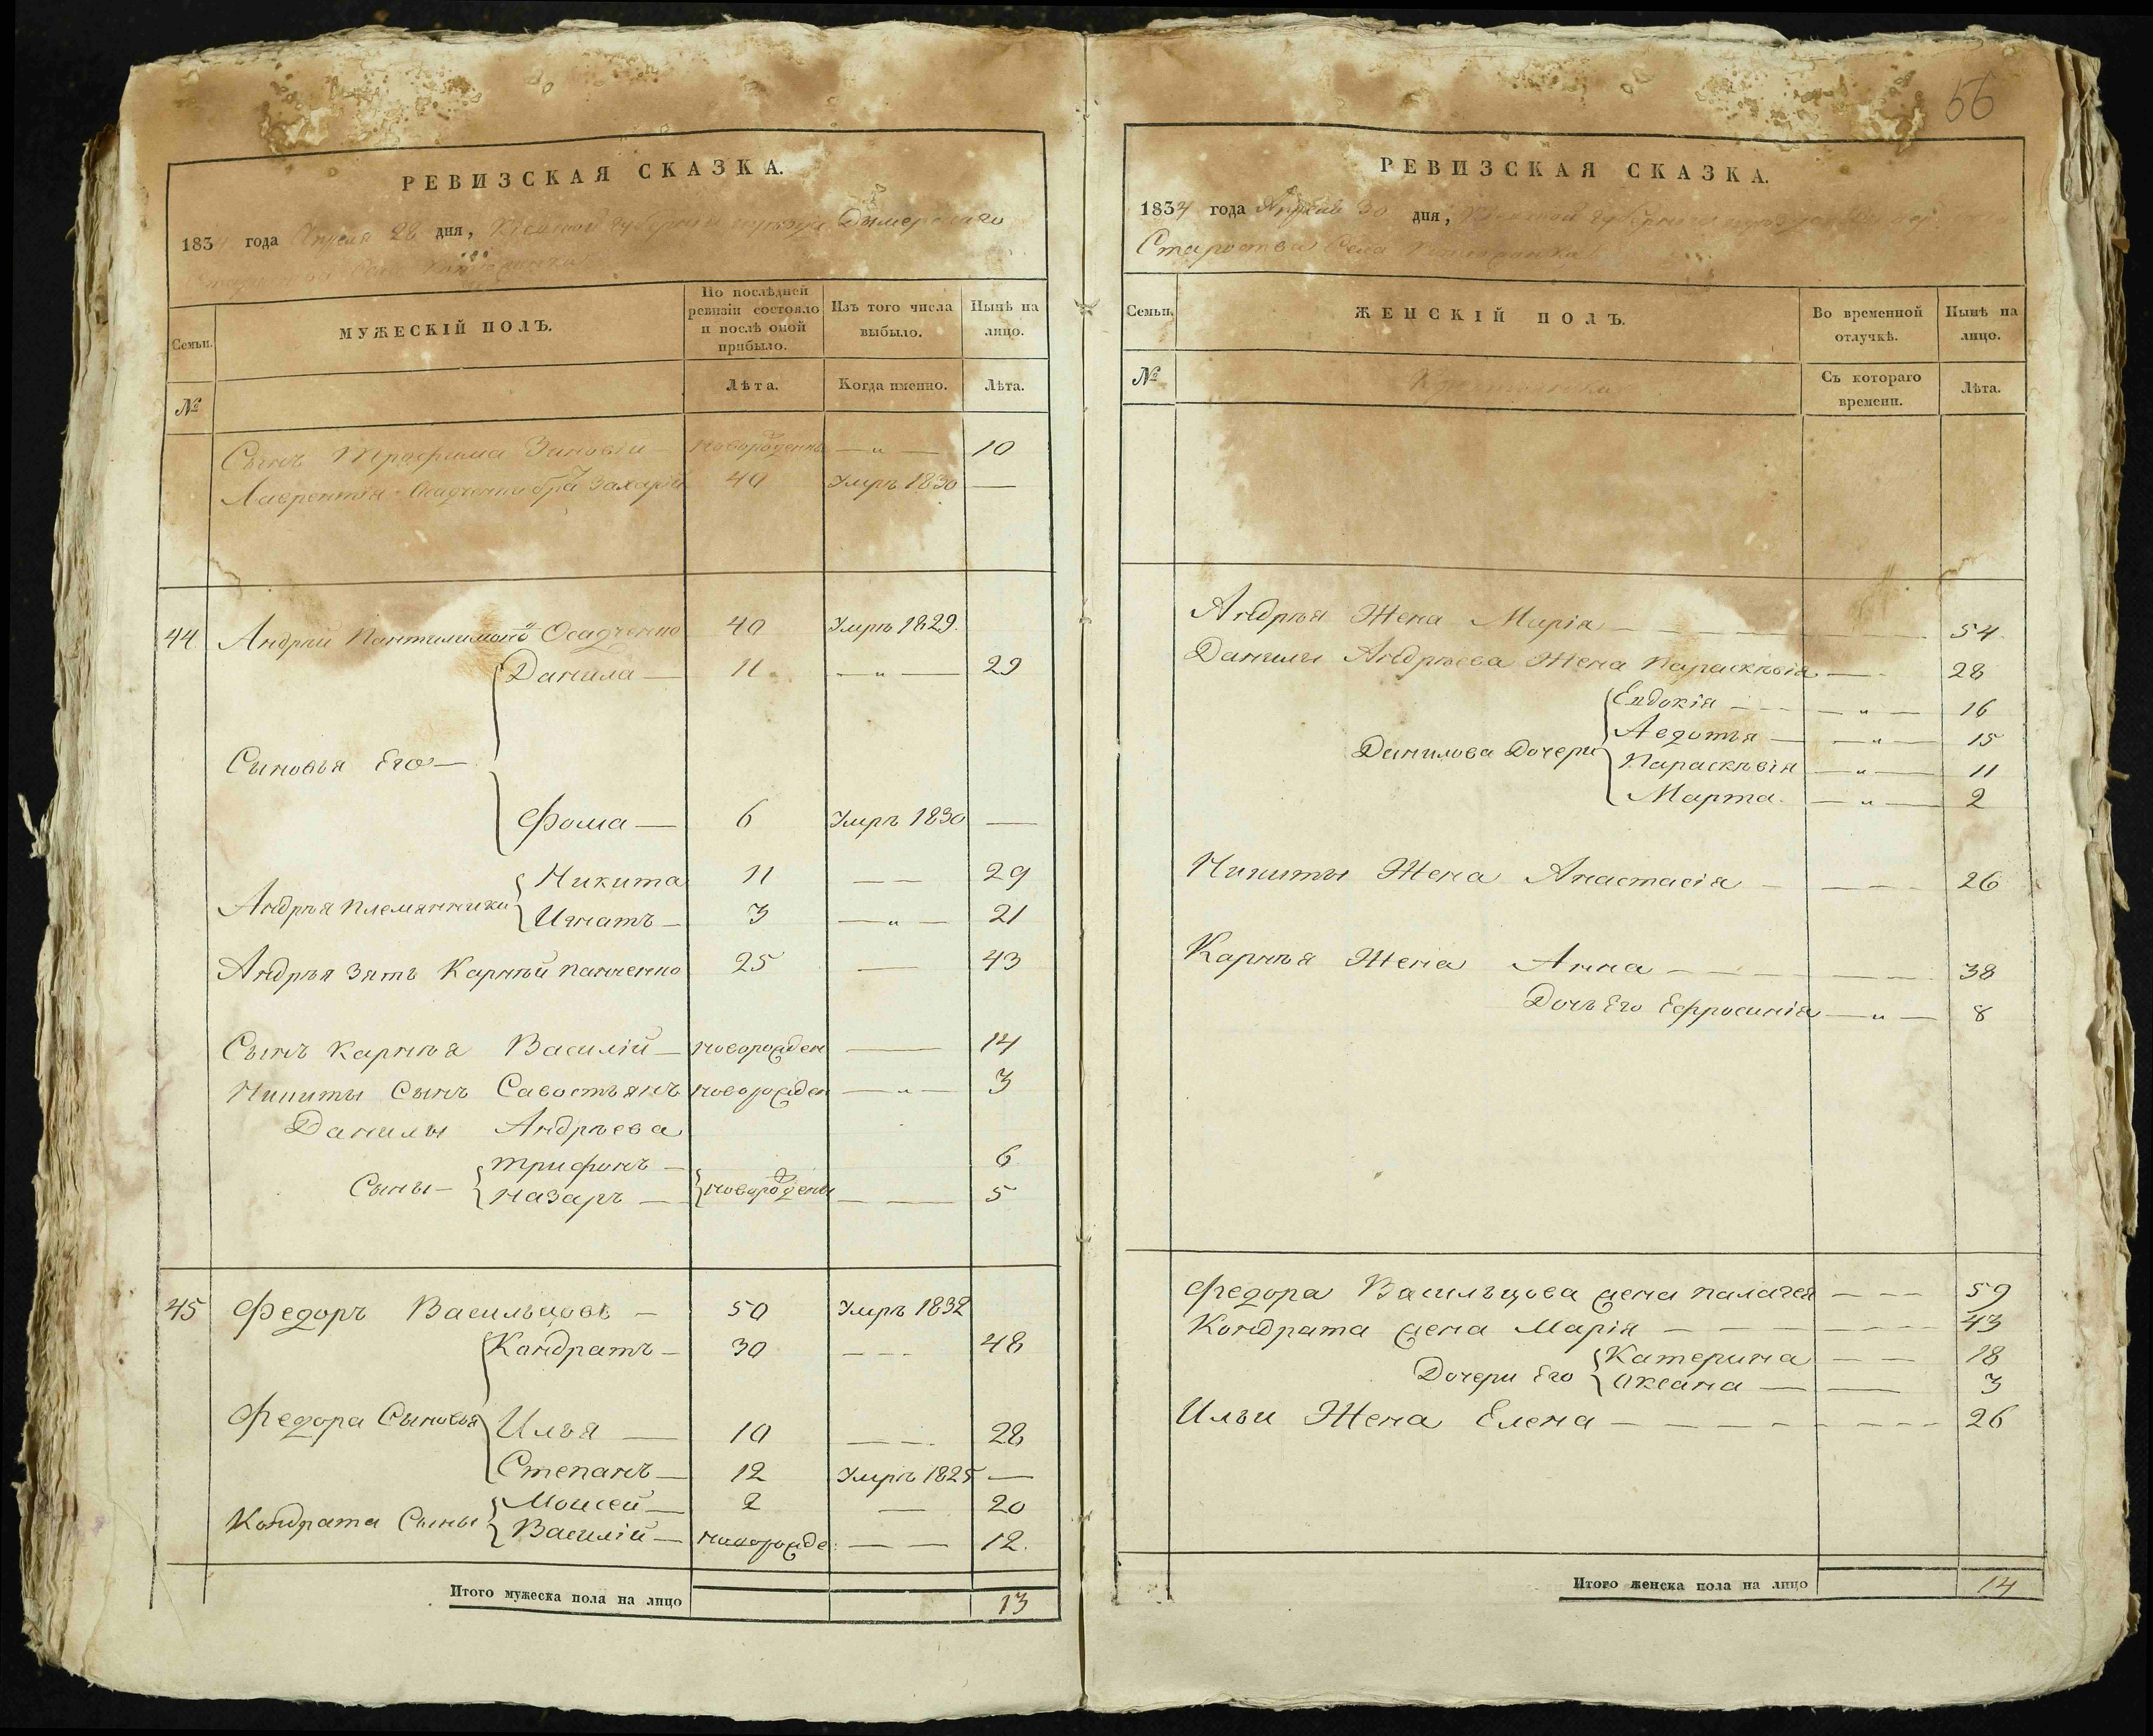 РЕВИЗСКАЯ СКАЗКА.
1834 года Апреля 28 дня, Кіевской губерніи и уѣзда Дымерскаго
МУЖЕСКІЙ ПОЛЪ.
Семьи.
№
По послѣдней ревизіи состояло и послѣ оной прибыло.
Лѣта.
Изъ того числа выбыло.
Когда именно.
Нынѣ на лицо.
Лѣта.
Сынъ Трофима Зиновiй — новорожденъ — „ — 10
Лаврентія Осадченка бра Захарій 40 Умръ 1830 —
44. Андрѣй Пантилимоно Осадченко 40 Умръ 1829.
Данила — 11 — „ — 29
Сыновья Его —
Фома — 6 Умръ 1830 —
Никита 11 — — 29
Андрѣя племянники
Игнатъ — 3 — „ — 21
Андрѣя зять Карнѣй Панченко 25 — 43
Сынъ Карнѣя Василій — новорожден — 14
Никиты Сынъ Савостьянъ новорожден — „ — 3
Данилы Андрѣева
Трифонъ — 6
Сыны — новорождены
Назаръ — — — 5
45 Федоръ Васильцовъ — 50 Умръ 1832
Кондратъ — 30 — — 48
Федора Сыновья
Илья — 10 — — 28
Степанъ — 12 Умръ 1825 —
Моисей — 2 — 20
Кондрата Сыны
Василій — новорожде: — — 12.
Итого мужеска пола на лицо 13
56
РЕВИЗСКАЯ СКАЗКА.
1834 года Апреля 30 дня, Кіевской губерніи
Староства Села
Семьи.
№
ЖЕНСКІЙ ПОЛЪ.
Во временной отлучкѣ.
Съ котораго времени.
Нынѣ на лицо.
Лѣта.
Андрѣя Жена Марія — — — 54.
Данилы Андрѣева Жена Параскѣвія — 28
Евдокія — — „ — 16
Авдотья — — „ — 15
Данилова Дочери
Параскѣвія — „ — 11
Марта. — „ — 2
Никиты Жена Анастасія — — — 26
Карнѣя Жена Анна — — — 38
Дочь Его Ефросинія — „ — 8
Федора Васильцова жена Палагея — — 59
Кондрата жена Марія — — — 43
Катерина — — 18
Дочери Его
Оксана — — 3
Ильи Жена Елена — — — 26
Итого женска пола на лицо 14